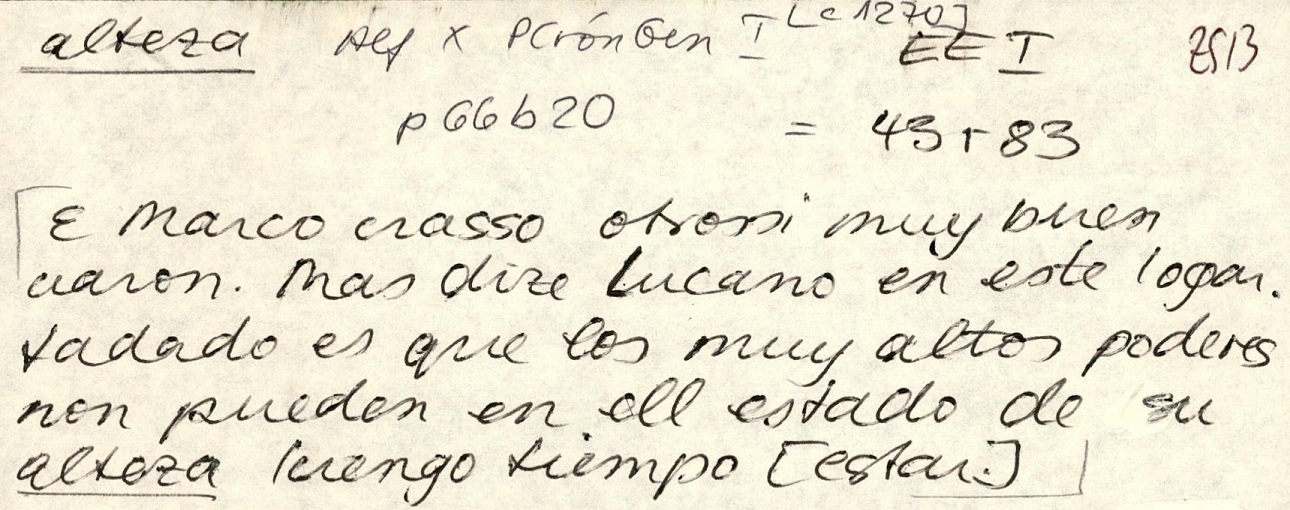 alteza Alf X PCrónGen I [c 1270] EE I 2513
p66b20 = 43r83
E Marco crasso otrossi muy buen
uaron. Mas dize Lucano en este logar.
dadado es que los muy altos poderes
non pueden en ell estado de su
alteza luengo tiempo [estar.]